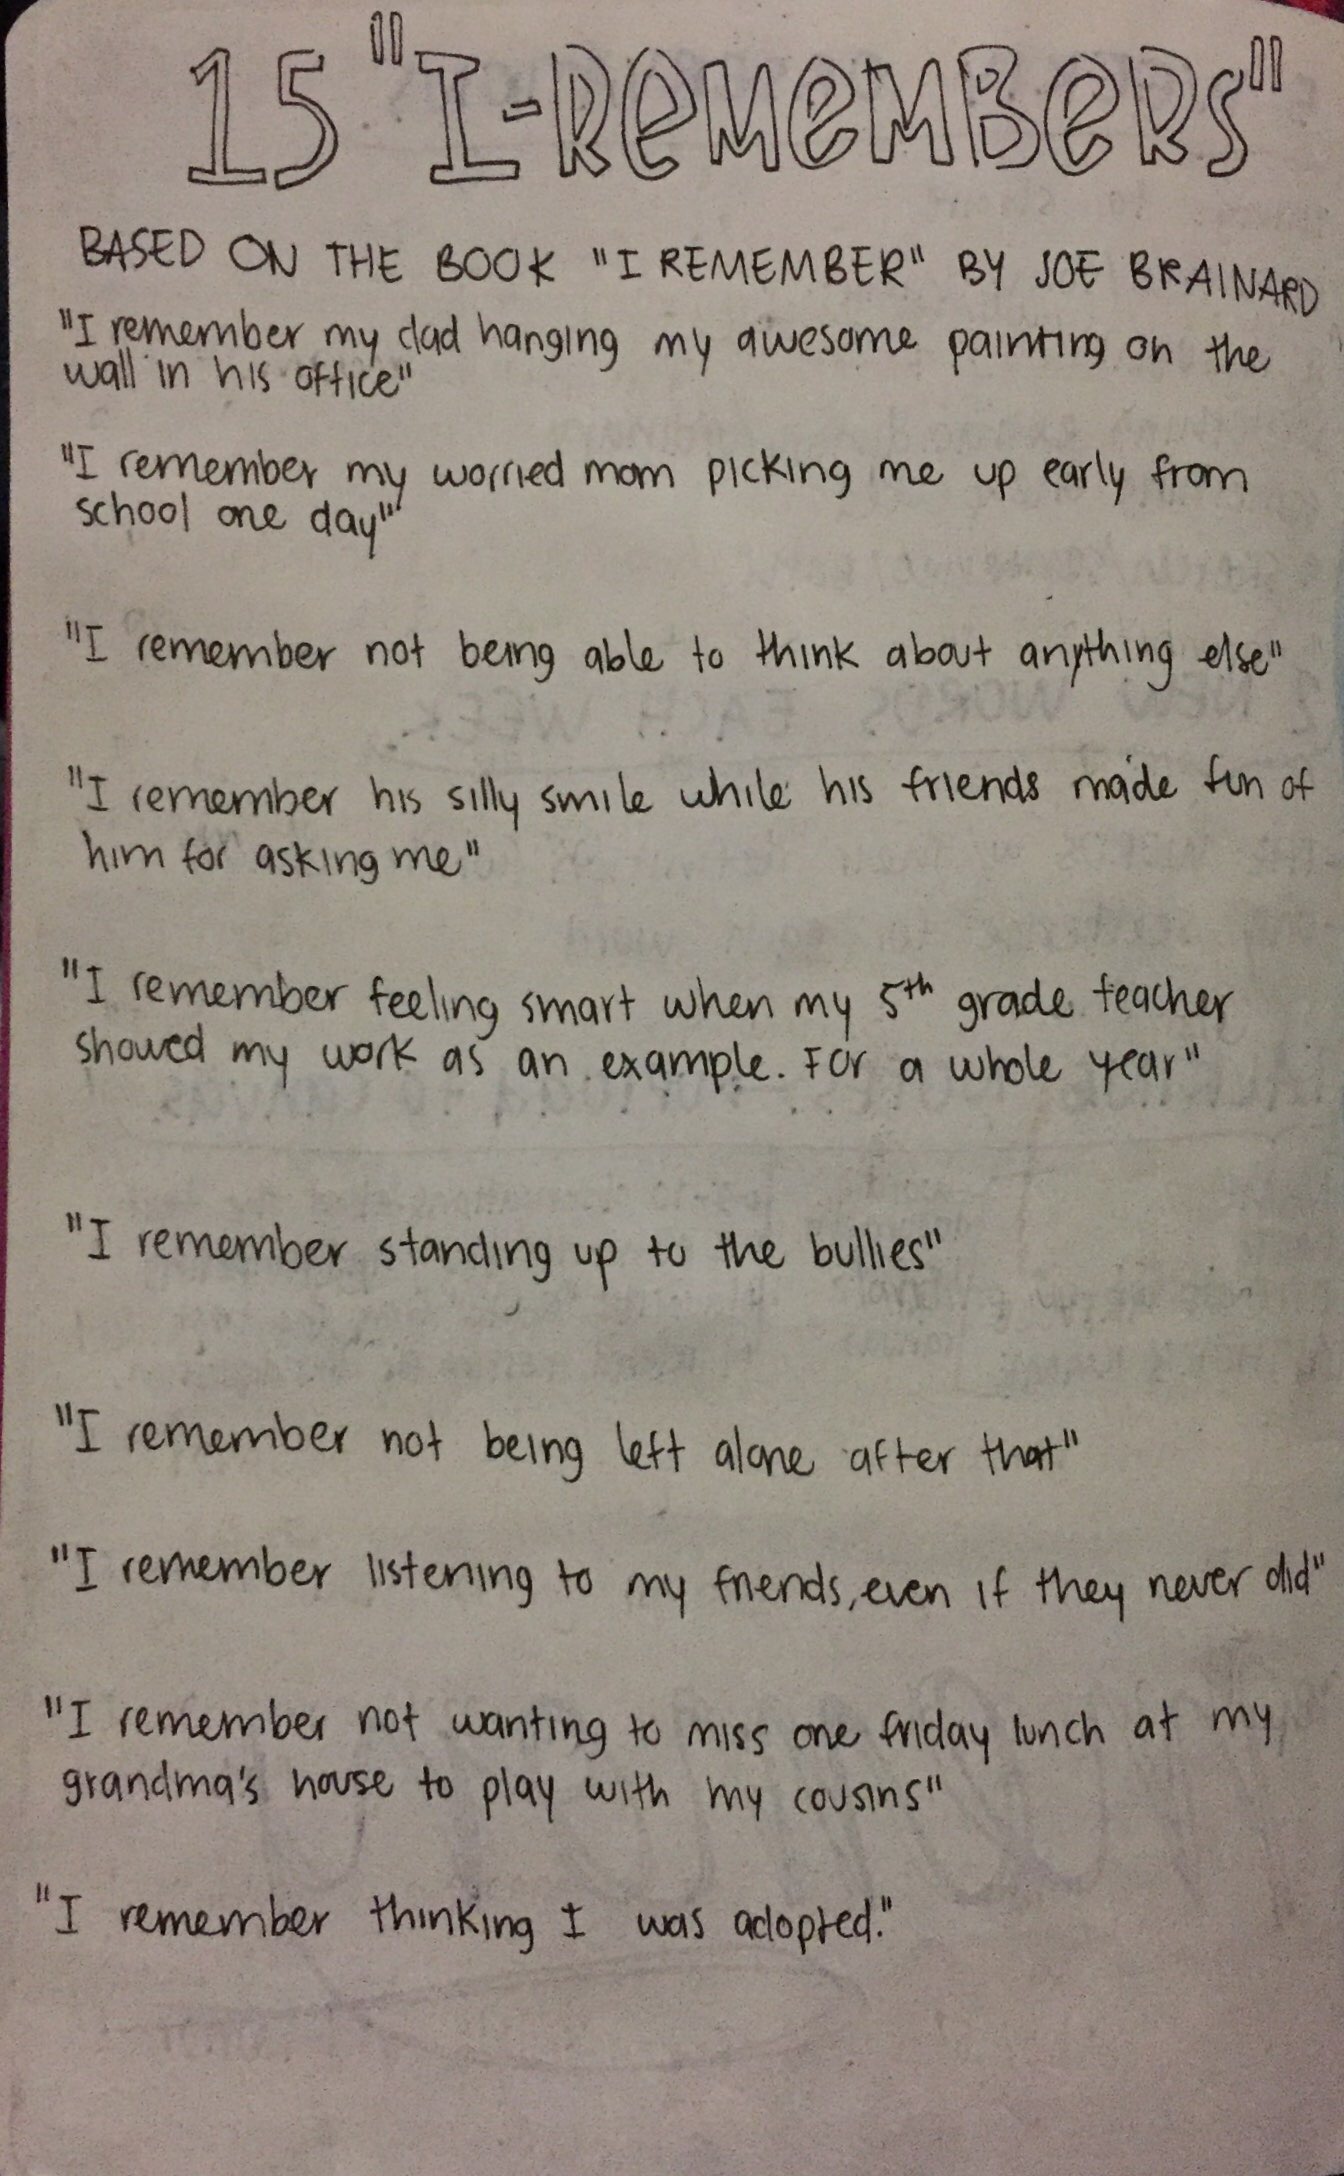 15 "I-ReMeMBeRS"
BASED ON THE BOOK "I REMEMBER" BY JOE BRAINARD
"I remember my dad hanging my awesome painting on the
wall in his office"
"I remember my worried mom picking me up early from
school one day"
"I remember not being able to think about anything else"
"I remember his silly smile while his friends made fun of
him for asking me"
"I remember feeling smart when my 5th grade teacher
showed my work as an example. For a whole year"
"I remember standing up to the bullies"
"I remember not being left alone after that"
"I remember listening to my friends, even if they never did"
"I remember not wanting to miss one friday lunch at my
grandma's house to play with my cousins"
"I remember thinking I was adopted."